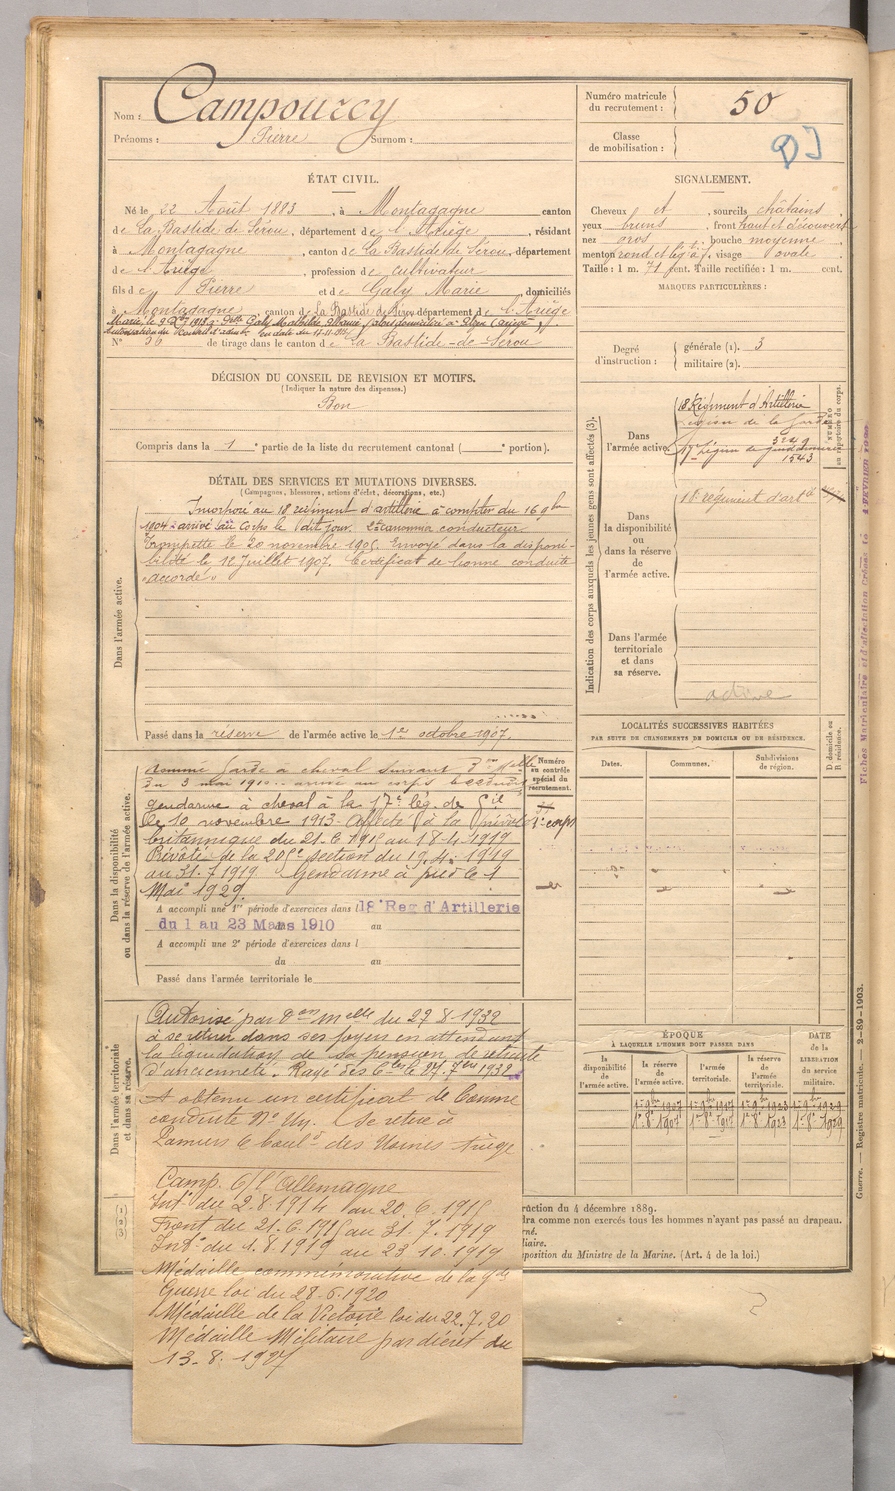 Nom : Campourcy
Prénoms : Pierre Surnom :
ÉTAT CIVIL.
Né le 22 Août 1883, à Montagagne canton
de La Bastide de Sérou, département de l'Ariège, résidant
à Montagagne, canton de La Bastide de Sérou, département
de l'Ariège, profession de cultivateur
fils de Pierre et de Galy Marie, domiciliés
à Montagagne, canton de La Bastide de Sérou département de l'Ariège
Marié le 9 1913 à Galy Mathilde Marie domiciliée à (Ariège)
Autorisation du Conseil d'adm en date du 17-11-1913
N° 36 de tirage dans le canton de La Bastide-de-Sérou
DÉCISION DU CONSEIL DE REVISION ET MOTIFS.
(Indiquer la nature des dispenses.)
Bon
Compris dans la 1e partie de la liste du recrutement cantonal ( e portion).
DÉTAIL DES SERVICES ET MUTATIONS DIVERSES.
(Campagnes, blessures, actions d'éclat, décorations, etc.)
Dans l'armée active.
Incorporé au 18 régiment d'artillerie à compter du 16 9bre
1904 arrivé au Corps le dit jour. 2e canonnier conducteur
Trompette le 20 novembre 1905. Envoyé dans la disponi-
bilité le 12 Juillet 1907. Certificat de bonne conduite
"accordé"
Passé dans la réserve de l'armée active le 1er octobre 1907.
Dans la disponibilité
ou dans la réserve de l'armée active.
Nommé Garde à cheval suivant
du 3 mai 1910 arrivé au corps le
Gendarme à cheval à la 17e lég. de Gie
le 10 novembre 1913. Affecté à la Prévôté
britannique du 21.6.1915 au 18-4-1919
Prévôté de la 205e section du 19.4.1919
au 31.7.1919 Gendarme à pied le 1
Mai 1929
A accompli une 1re période d'exercices dans l 18e Reg d'Artillerie
du 1 au 23 Mars 1910 au
A accompli une 2e période d'exercices dans l
du au
Passé dans l'armée territoriale le
Numéro
au contrôle
spécial du
recrutement.
1e corps
Dans l'armée territoriale
et dans sa réserve.
Autorisé par Don Melle du 27-8-1932
à se retirer dans ses foyers en attendant
la liquidation de sa pension de retraite
d'ancienneté. Rayé des Ctles le 27.7bre 1932
A obtenu un certificat de bonne
conduite N° Un. Se retire à
Pamiers 6 boul d des Usines Ariège
Camp. C/ l'Allemagne
Intr du 2.8.1914 au 20.6.1915
Front du 21.6.1915 au 31.7.1919
Intr du 1.8.1919 au 23 10.1919
Médaille commémorative de la gde
Guerre loi du 28-6-1920
Médaille de la Victoire loi du 22.7.20
Médaille Militaire par décret du
13-8-1927
Numéro matricule
du recrutement : 50
Classe
de mobilisation :
SIGNALEMENT.
Cheveux et, sourcils châtains
yeux bruns, front haut et découvert
nez gros, bouche moyenne
menton rond et visage ovale
Taille : 1 m. 71 cent. Taille rectifiée : 1 m. cent.
MARQUES PARTICULIÈRES :
Degré
d'instruction :
générale (1). 3
militaire (2).
Indication des corps auxquels les jeunes gens sont affectés (3).
Dans
l'armée active.
18 Régiment d'Artillerie
Légion de la Garde
17e Légion de gendarmerie
1543
NUMÉRO
au répertoire du corps.
Dans
la disponibilité
ou
dans la réserve
de
l'armée active.
18 régiment d'artie
Dans l'armée
territoriale
et dans
sa réserve.
active
LOCALITÉS SUCCESSIVES HABITÉES
PAR SUITE DE CHANGEMENTS DE DOMICILE OU DE RÉSIDENCE.
Dates.
Communes.
Subdivisions
de région.
D domicile ou
R résidence.
ÉPOQUE
À LAQUELLE L'HOMME DOIT PASSER DANS
la
disponibilité
de
l'armée active.
la réserve
de
l'armée active.
l'armée
territoriale.
la réserve
de
l'armée
territoriale.
DATE
de la
LIBÉRATION
du service
militaire.
1er 8bre 1907 1er 8bre 1917 1er 8bre 1923 1er 8bre 1929
(1)
(2)
(3)
ruction du 4 décembre 1889.
dra comme non exercés tous les hommes n'ayant pas passé au drapeau.
rné.
liaire.
position du Ministre de la Marine. (Art. 4 de la loi.)
Guerre. — Registre matricule. — 2-89-1903.
Fiches Matriculaire et d'affectation Créées le 4 FÉVRIER